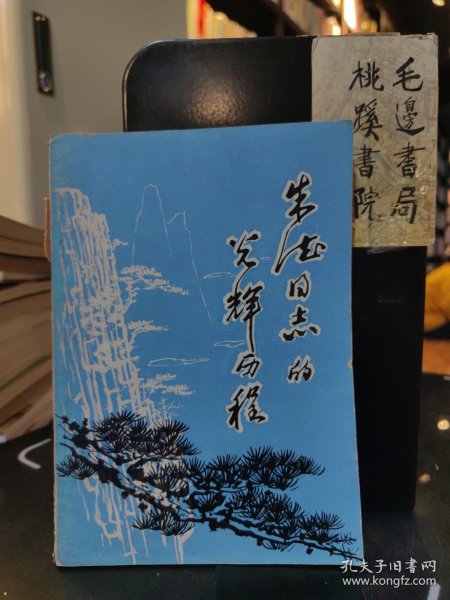 朱德同志的
光辉历程
毛邊書局
桃蹊書院
孔夫子旧书网
www.kongfz.com